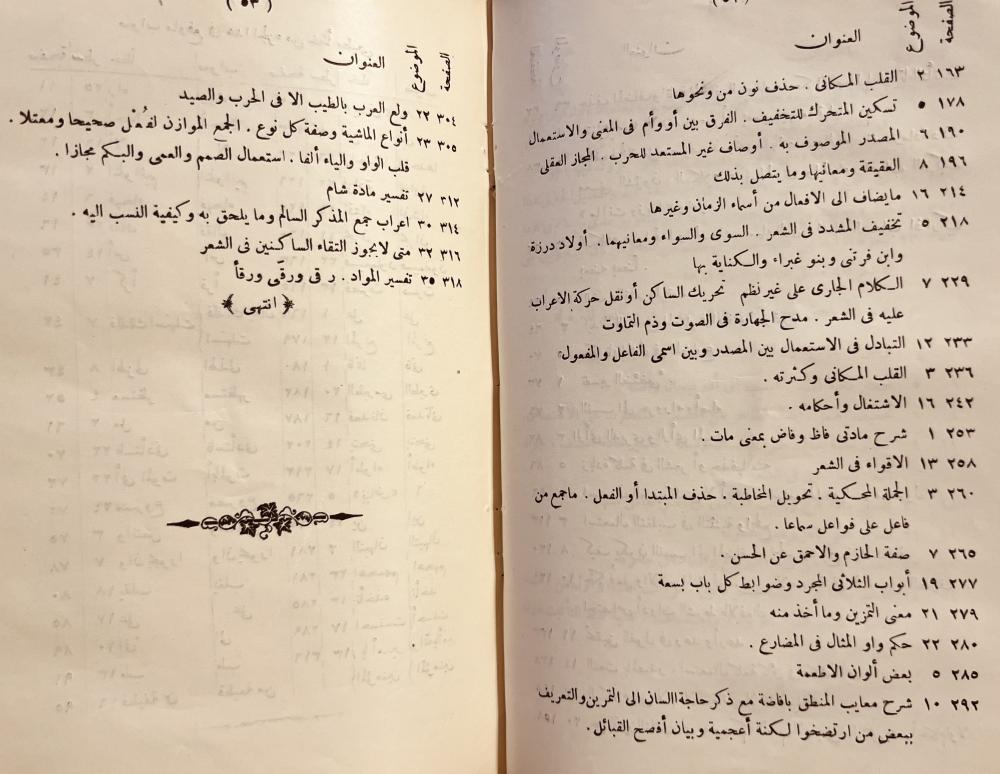 الصفحة الموضوع العنوان
١٦٣ ٢ القلب المكانى . حذف نون من ونحوها
١٧٨ ٥ تسكين المتحرك للتخفيف . الفرق بين أو وأم فى المعنى والاستعمال
١٩٠ ٦ المصدر الموصوف به . أوصاف غير المستعد للحرب . المجاز العقلى
١٩٦ ٨ العقيقة ومعانيها وما يتصل بذلك
٢١٤ ١٦ مايضاف الى الافعال من أسماء الزمان وغيرها
٢١٨ ٥ تخفيف المشدد فى الشعر . السوى والسواء ومعانيهما . أولاد درزة
وابن فرتنى وبنو غبراء والكناية بها
٢٢٩ ٧ الكلام الجارى على غير نظم تحريك الساكن أو نقل حركة الاعراب
عليه فى الشعر . مدح الجهارة فى الصوت وذم التماوت
٢٣٣ ١٢ التبادل فى الاستعمال بين المصدر وبين اسمى الفاعل والمفعول
٢٣٦ ٣ القلب المكانى وكثرته .
٢٤٢ ١٦ الاشتغال وأحكامه .
٢٥٣ ١ شرح مادتى فاظ وفاض بمعنى مات .
٢٥٨ ١٣ الاقواء فى الشعر
٢٦٠ ٣ الجملة المحكية . تحويل المخاطبة . حذف المبتدا أو الفعل . ماجمع من
فاعل على فواعل سماعا .
٢٦٥ ٧ صفة الحازم والاحمق عن الحسن .
٢٧٧ ١٩ أبواب الثلاثى المجرد وضوابط كل باب بسعة
٢٧٩ ٢١ معنى التمزين وما أخذ منه
٢٨٠ ٢٢ حكم واو المثال فى المضارع .
٢٨٥ ٥ بعض ألوان الاطعمة
٢٩٢ ١٠ شرح معايب المنطق بافاضة مع ذكر حاجة االسان الى التمرين والتعريف
ببعض من ارتضخوا لكنة أعجمية وبيان أفصح القبائل .
( ٥٣ )
الصفحة الموضوع العنوان
٣٠٤ ٢٢ ولع العرب بالطيب الا فى الحرب والصيد
٣٠٥ ٢٣ أنواع الماشية وصفة كل نوع . الجمع الموازن لفُعْل صحيحا ومعتلا .
قلب الواو والياء ألفا . استعمال الصمم والعمى والبكم مجازا .
٣١٢ ٢٧ تفسير مادة شام
٣١٤ ٣٠ اعراب جمع المذكر السالم وما يلحق به وكيفية النسب اليه .
٣١٦ ٣٢ متى لايجوز التقاء الساكنين فى الشعر
٣١٨ ٣٥ تفسير المواد . رقى ورقَى ورقأ
﴿ انتهى ﴾